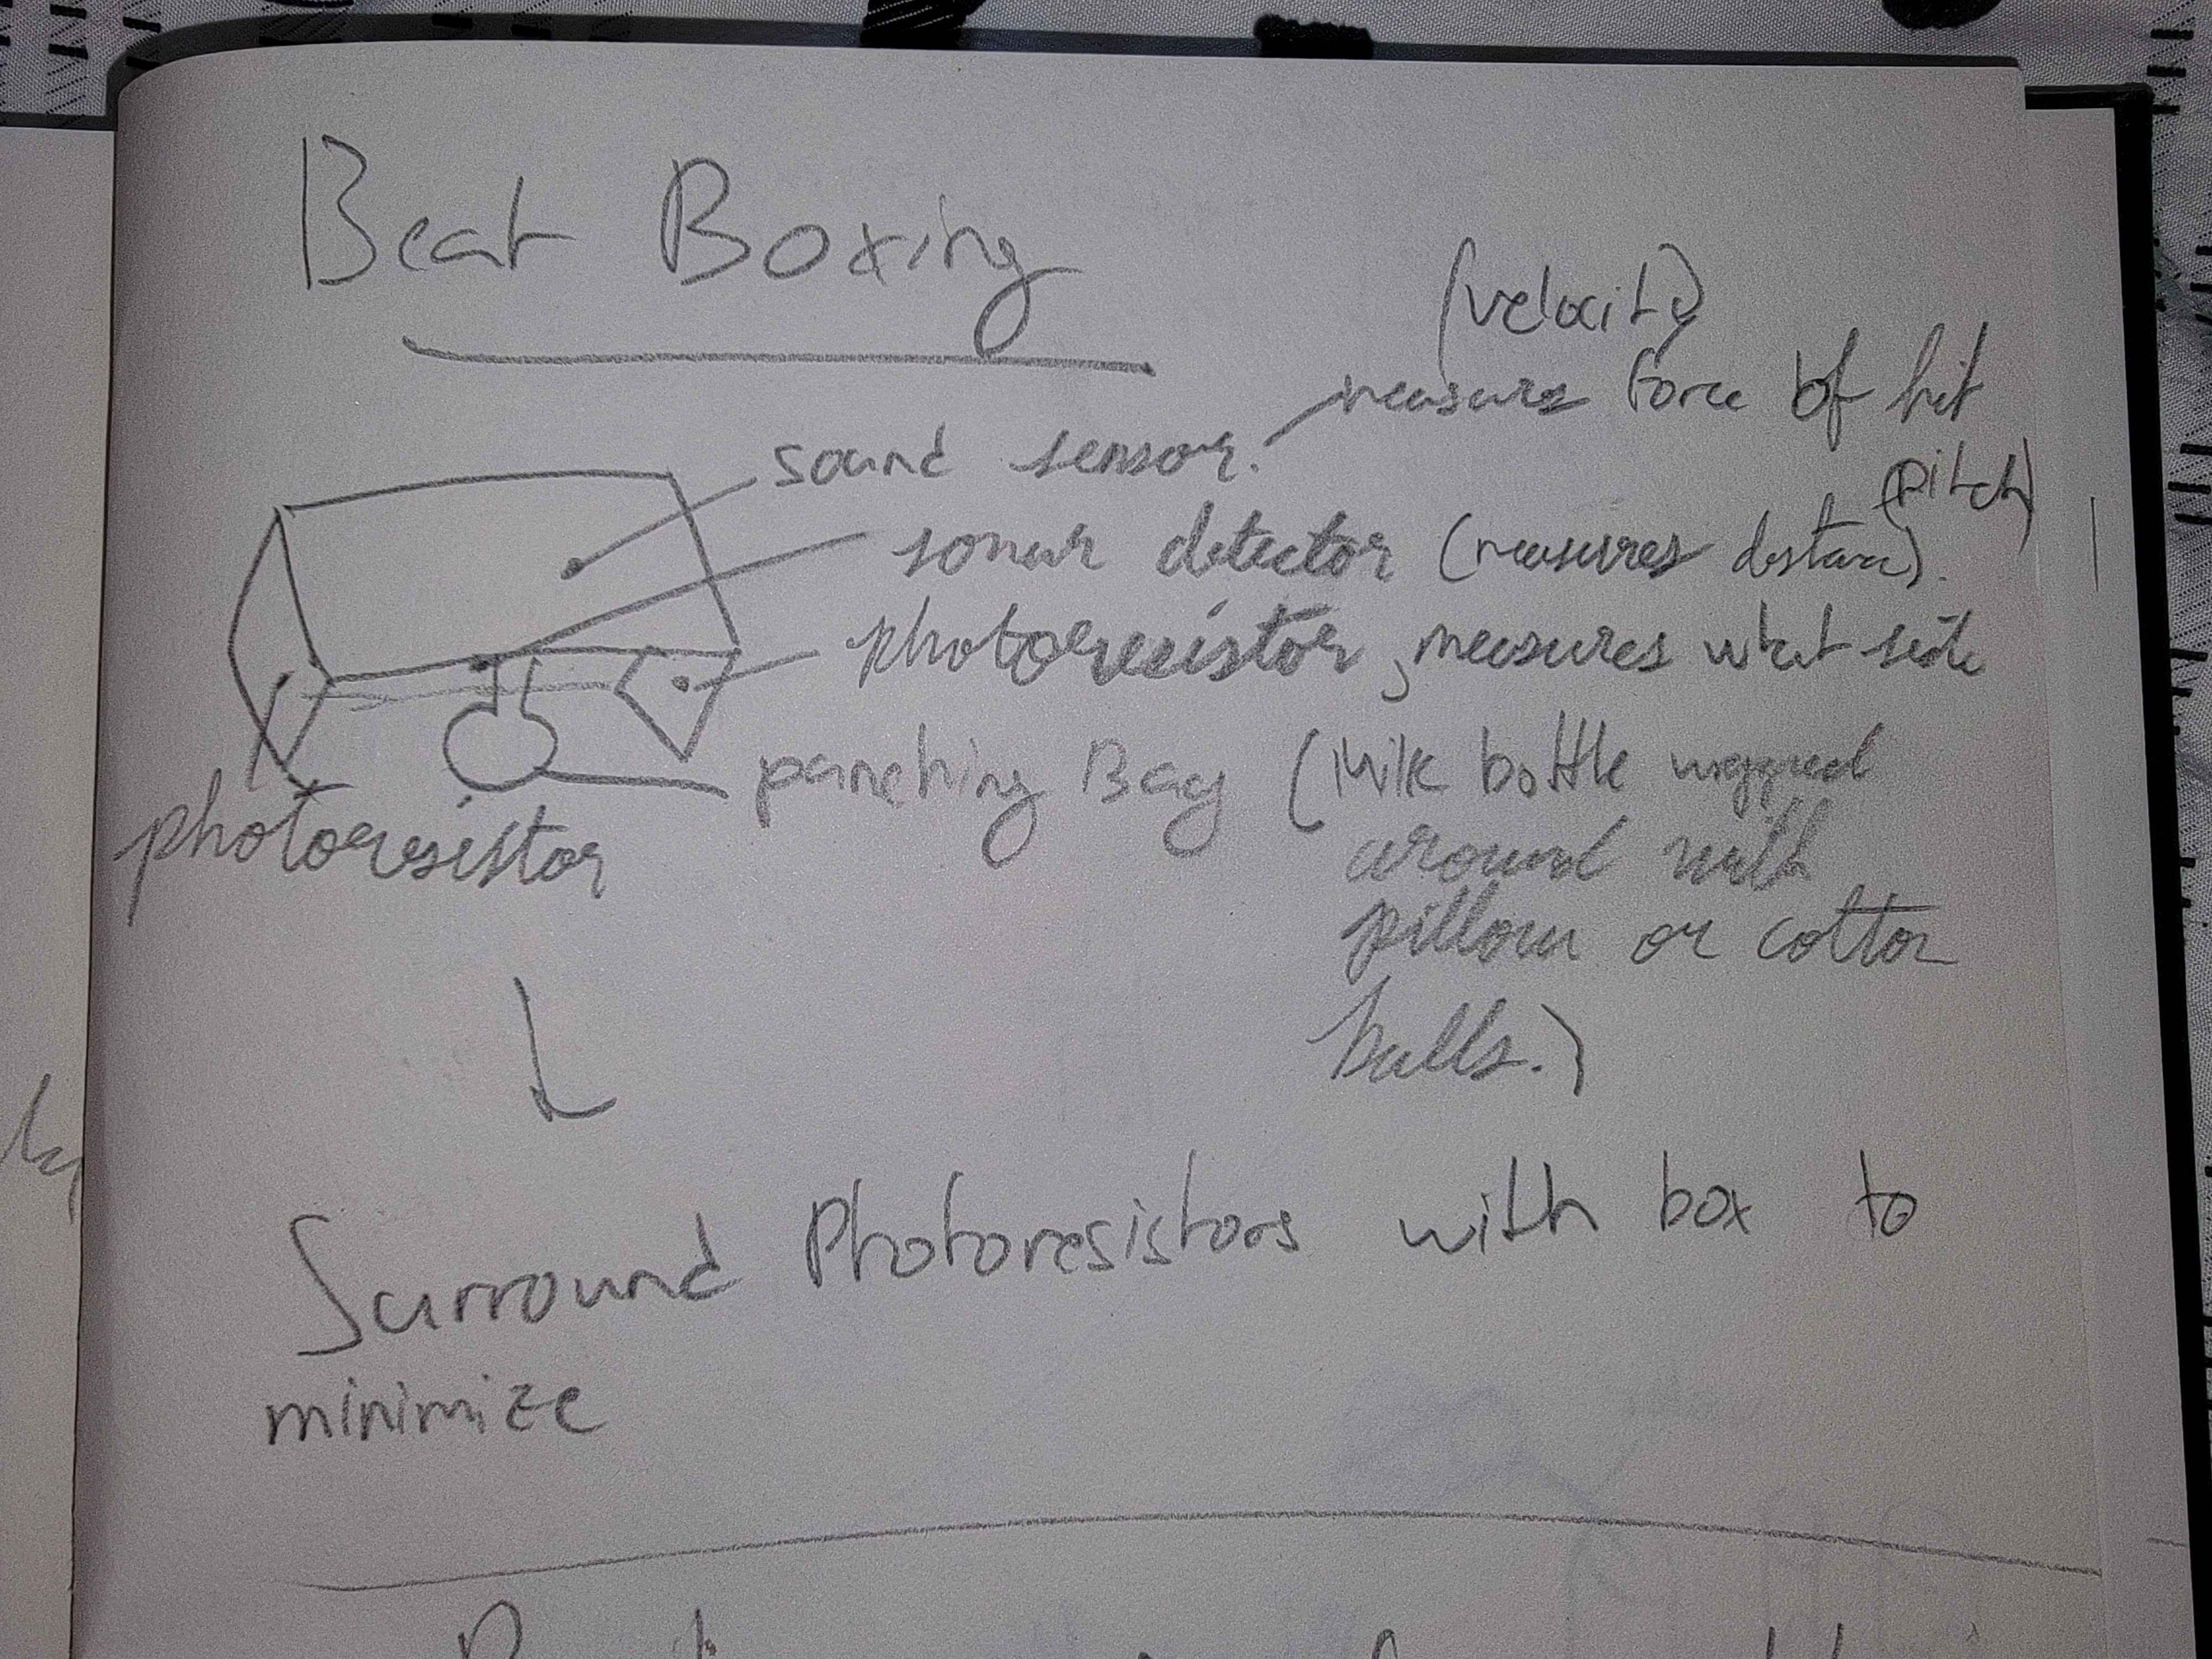 Beat Boxing
(velocity)
measure force of hit
sound sensor.
(pitch)
sonar detector (measures distance).
photoresistor, measures what side
punching Bag (Milk bottle wrapped
around with
pillow or cotton
balls.)
photoresistor
Surround Photoresistors with box to
minimize